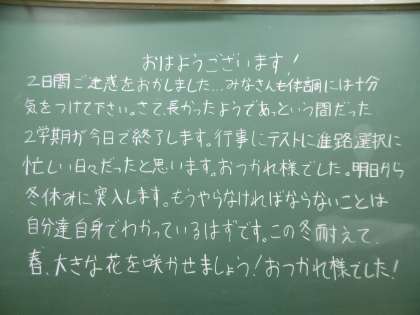 おはようございます!
2日間ご迷惑をおかしました…みなさんも体調には十分
気をつけて下さい。さて、長かったようであっという間だった
2学期が今日で終了します。行事にテストに進路選択に
忙しい日々だったと思います。おつかれ様でした。明日から
冬休みに突入します。もうやらなければならないことは
自分達自身でわかっているはずです。この冬耐えて、
春、大きな花を咲かせましょう!おつかれ様でした!